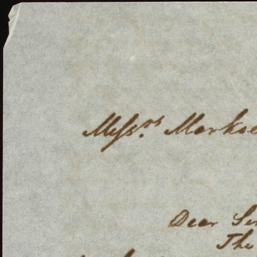 Messrs. Markoe
Dear Sir
The